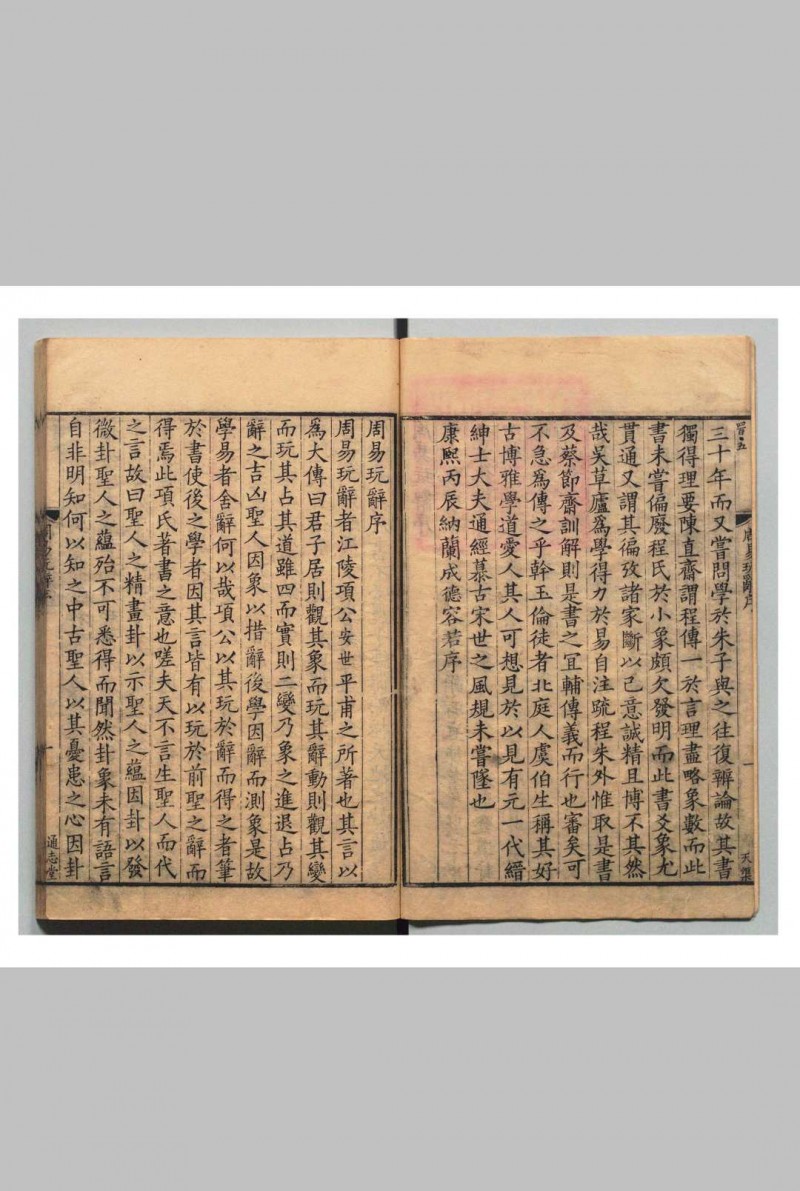 三十年而又嘗問學於朱子與之往復辨論故其書
獨得理要陳直齋謂程傳一於言理盡略象數而此
書未嘗偏廢程氏於小象頗欠發明而此書爻象尤
貫通又謂其徧攷諸家斷以己意誠精且博不其然
哉吳草廬爲學得力於易自注疏程朱外惟取是書
及蔡節齋訓解則是書之宜輔傳義而行也審矣可
不急爲傳之乎幹玉倫徒者北庭人虞伯生稱其好
古博雅學道愛人其人可想見於以見有元一代縉
紳士大夫通經慕古宋世之風規未嘗墜也
康熙丙辰納蘭成德容若序
周易玩辭序
一
周易玩辭序
周易玩辭者江陵項公安世平甫之所著也其言以
爲大傳曰君子居則觀其象而玩其辭動則觀其變
而玩其占其道雖四而實則二變乃象之進退占乃
辭之吉凶聖人因象以措辭後學因辭而測象是故
學易者舍辭何以哉項公以其玩於辭而得之者筆
於書使後之學者因其言皆有以玩於前聖之辭而
得焉此項氏著書之意也嗟夫天不言生聖人而代
之言故曰聖人之精畫卦以示聖人之蘊因卦以發
微卦聖人之蘊殆不可悉得而聞然卦象未有語言
自非明知何以知之中古聖人以其憂患之心因卦
周易玩辭序
一
通志堂